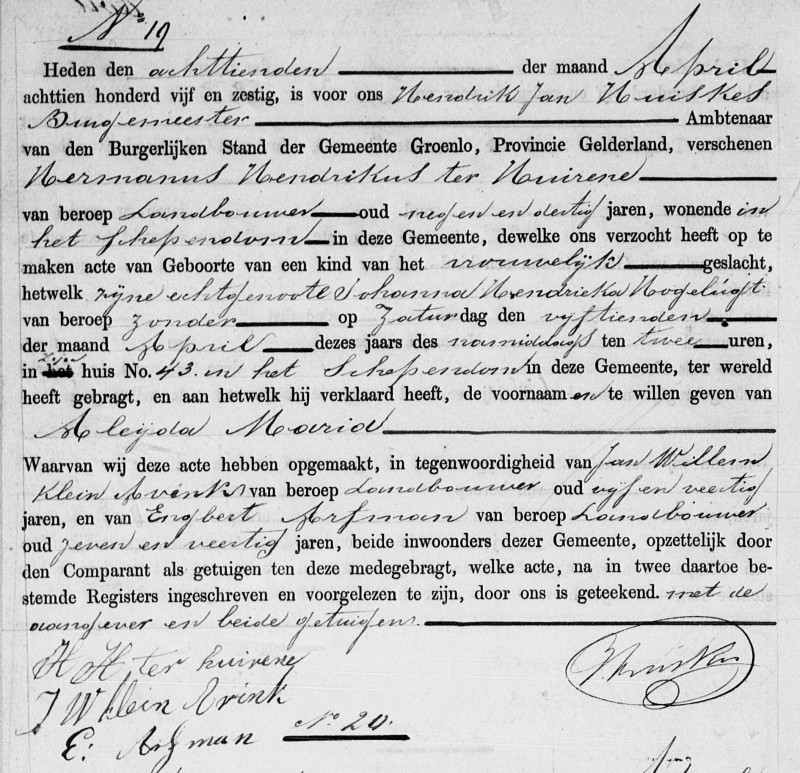 No 19
Heden den achttienden der maand April
achttien honderd vijf en zestig, is voor ons Hendrik Jan Huiskes
Burgemeester Ambtenaar
van den Burgerlijken Stand der Gemeente Groenlo, Provincie Gelderland, verschenen
Hermanus Hendrikus ter Huirene
van beroep Landbouwer oud negen en dertig jaren, wonende in
het Schependom in deze Gemeente, dewelke ons verzocht heeft op te
maken acte van Geboorte van een kind van het vrouwelijk geslacht,
hetwelk zijne echtgenoote Johanna Hendrieka Hogelúgt
van beroep zonder op Zaturdag den vijftienden
der maand April dezes jaars des namiddags ten twee uren,
in zijn het huis No. 43. in het Schependom in deze Gemeente, ter wereld
heeft gebragt, en aan hetwelk hij verklaard heeft, de voornaamen te willen geven van
Aleijda Maria
Waarvan wij deze acte hebben opgemaakt, in tegenwoordigheid van Jan Willem
Klein Avink van beroep Landbouwer oud vijf en veertig
jaren, en van Engbert Arfman van beroep Landbouwer
oud zeven en veertig jaren, beide inwoonders dezer Gemeente, opzettelijk door
den Comparant als getuigen ten deze medegebragt, welke acte, na in twee daartoe be-
stemde Registers ingeschreven en voorgelezen te zijn, door ons is geteekend. met de
aangever en beide getuigen.
H H ter huirene
J W klein Avink
E: Arfman No 20.